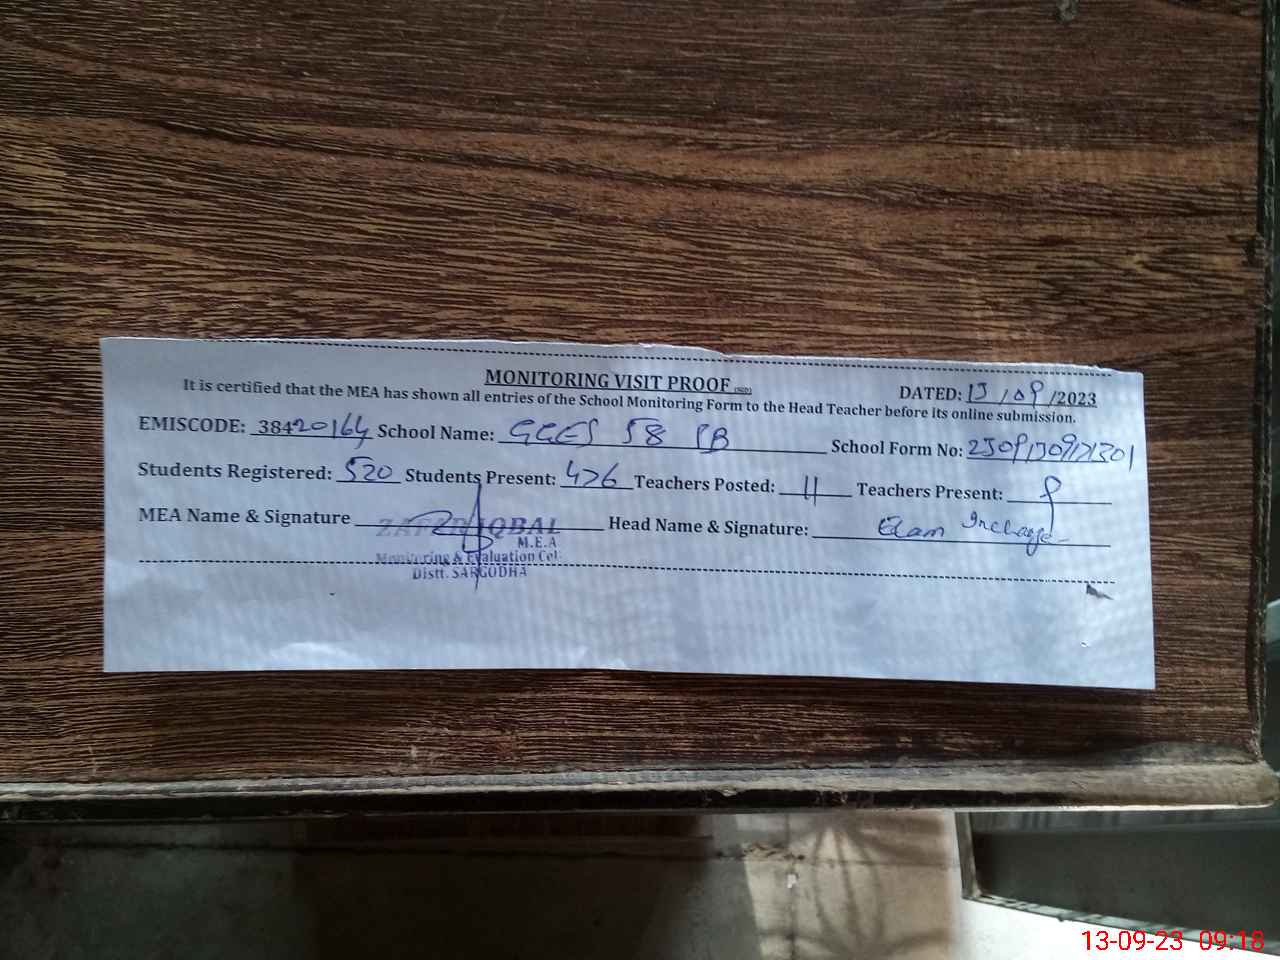 MONITORING VISIT PROOF
DATED: 13/09/2023
It is certified that the MEA has shown all entries of the School Monitoring Form to the Head Teacher before its online submission.
EMISCODE: 38420164 School Name: GGES 58 SB School Form No:
Students Registered: 520 Students Present: 476 Teachers Posted: 11 Teachers Present: 9
MEA Name & Signature ZAFAR IQBAL Head Name & Signature: Exam Incharge
M.E.A
Monitoring & Evaluation Cell
Distt. SARGODHA
13-09-23 09:18